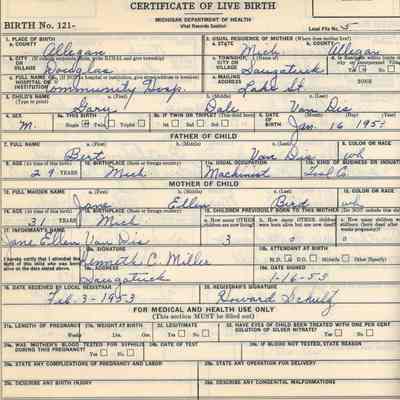 CERTIFICATE OF LIVE BIRTH
MICHIGAN DEPARTMENT OF HEALTH
Vital Records Section
BIRTH No. 121-
Local File No. 5
1. PLACE OF BIRTH
a. COUNTY
Allegan
2. USUAL RESIDENCE OF MOTHER (Where does mother live?)
a. STATE
Mich.
b. COUNTY
Allegan
b. CITY
OR
VILLAGE
Douglas
c. TOWNSHIP,
CITY OR
VILLAGE
Saugatuck
c. FULL NAME OF
HOSPITAL OR
INSTITUTION
Community Hosp.
d. MAILING
ADDRESS
Lake St.
3. CHILD'S NAME
(Type or print)
a. (First)
Gary
b. (Middle)
Dale
c. (Last)
Van Dis
4. SEX
M.
5a. THIS BIRTH
Single Twin Triplet
5b. IF TWIN OR TRIPLET (This child born)
1st 2d 3d
6. DATE
OF
BIRTH
(Month) (Day) (Year)
Jan. 16 195
FATHER OF CHILD
7. FULL NAME
a. (First)
Bert
b. (Middle)
c. (Last)
Van Dis
8. COLOR OR RACE
wh
9. AGE (At time of this birth)
29 YEARS
10. BIRTHPLACE (State or foreign country)
Mich
11a. USUAL OCCUPATION
Machinist
11b. KIND OF BUSINESS OR INDUSTRY
Tool Co.
MOTHER OF CHILD
12. FULL MAIDEN NAME
a. (First)
Jane
b. (Middle)
Ellen
c. (Last)
Bird
13. COLOR OR RACE
wh
14. AGE (At time of this birth)
31 YEARS
15. BIRTHPLACE (State or foreign country)
Mich
16. CHILDREN PREVIOUSLY BORN TO THIS MOTHER (Do NOT include this child)
a. How many OTHER children are now living?
3
b. How many OTHER children were born alive but are now dead?
0
17. INFORMANT'S NAME
Jane Ellen Van Dis
I hereby certify that I attended the birth of this child who was born alive on the date stated above.
18a. SIGNATURE
Kenneth C. Miller
18b. ATTENDANT AT BIRTH
M.D. D.O. Midwife Other (Specify)
ADDRESS
Saugatuck
DATE SIGNED
1-16-53
DATE RECEIVED BY LOCAL REGISTRAR
Feb-3-1953
REGISTRAR'S SIGNATURE
Howard Schultz
FOR MEDICAL AND HEALTH USE ONLY
(This section MUST be filled out)
21a. LENGTH OF PREGNANCY
Weeks
21b. WEIGHT AT BIRTH
Lbs. Ozs.
22. LEGITIMATE
Yes No
23. HAVE EYES OF CHILD BEEN TREATED WITH ONE PER CENT SOLUTION OF SILVER NITRATE?
Yes No
24a. WAS MOTHER'S BLOOD TESTED FOR SYPHILIS DURING THIS PREGNANCY?
Yes No
24b. DATE OF TEST
IF BLOOD NOT TESTED, STATE REASON
STATE ANY COMPLICATIONS OF PREGNANCY AND LABOR
STATE ANY OPERATION FOR DELIVERY
DESCRIBE ANY BIRTH INJURY
DESCRIBE ANY CONGENITAL MALFORMATIONS